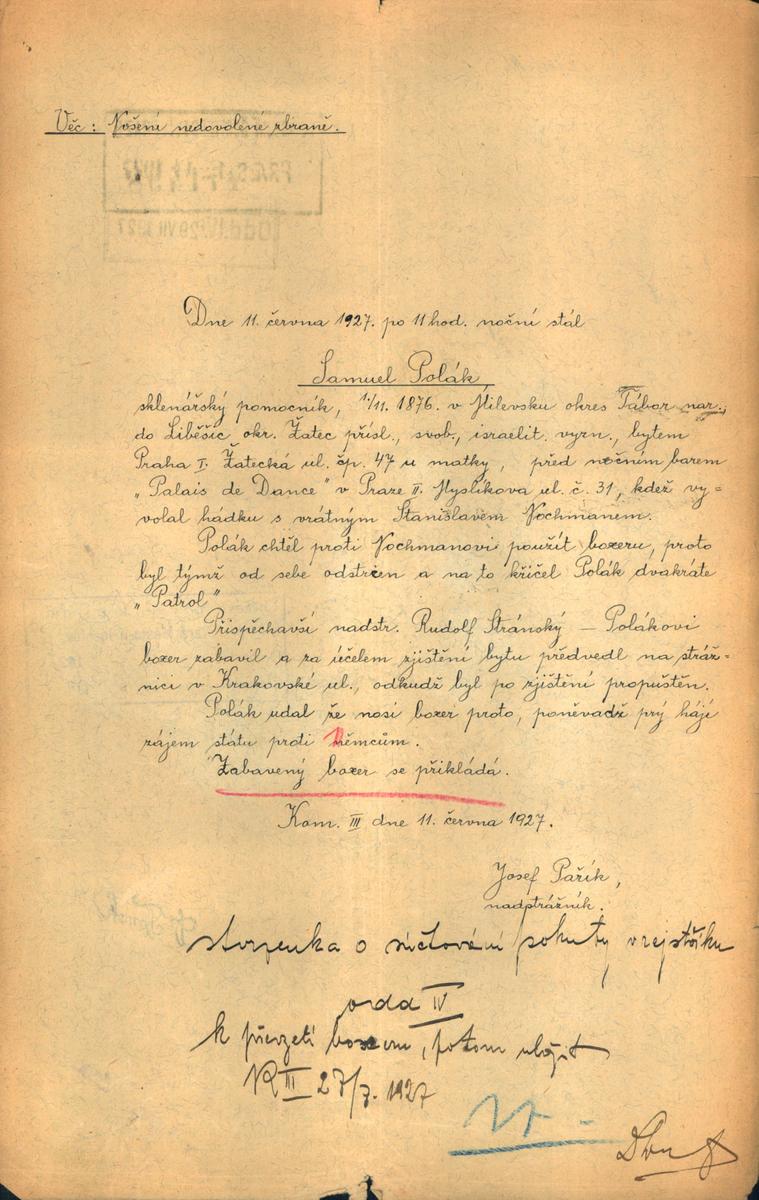 Věc: Nošení nedovolené zbraně.
Dne 11. června 1927. po 11 hod. noční stál
Samuel Polák,
sklenářský pomocník, 1/11. 1876. v Milevsku okres Tábor nar.,
do Liběšic okr. Žatec přísl., svob., israelit. vyzn., bytem
Praha I. Žatecká ul. čp. 47 u matky, před nočním barem
"Palais de Dance" v Praze II. Myslíkova ul. č. 31, kdež vy=
volal hádku s vrátným Stanislavem Vochmanem.
Polák chtěl proti Vochmanovi použít boxeru, proto
byl týmž od sebe odstrčen a na to křičel Polák dvakráte
"Patrol"
Přispěchavší nadstr. Rudolf Stránský – Polákovi
boxer zabavil a za účelem zjištění bytu předvedl na stráž=
nici v Krakovské ul., odkudž byl po zjištění propuštěn.
Polák udal že nosí boxer proto, poněvadž prý hájí
zájem státu proti Němcům.
Zabavený boxer se přikládá.
Kom. III dne 11. června 1927.
Josef Pařík,
nadstrážník.
stvrzenka o súčtování pokuty v rejstříku
odd IV
k převzetí boxeru, potom uložit
KR III 27/7. 1927